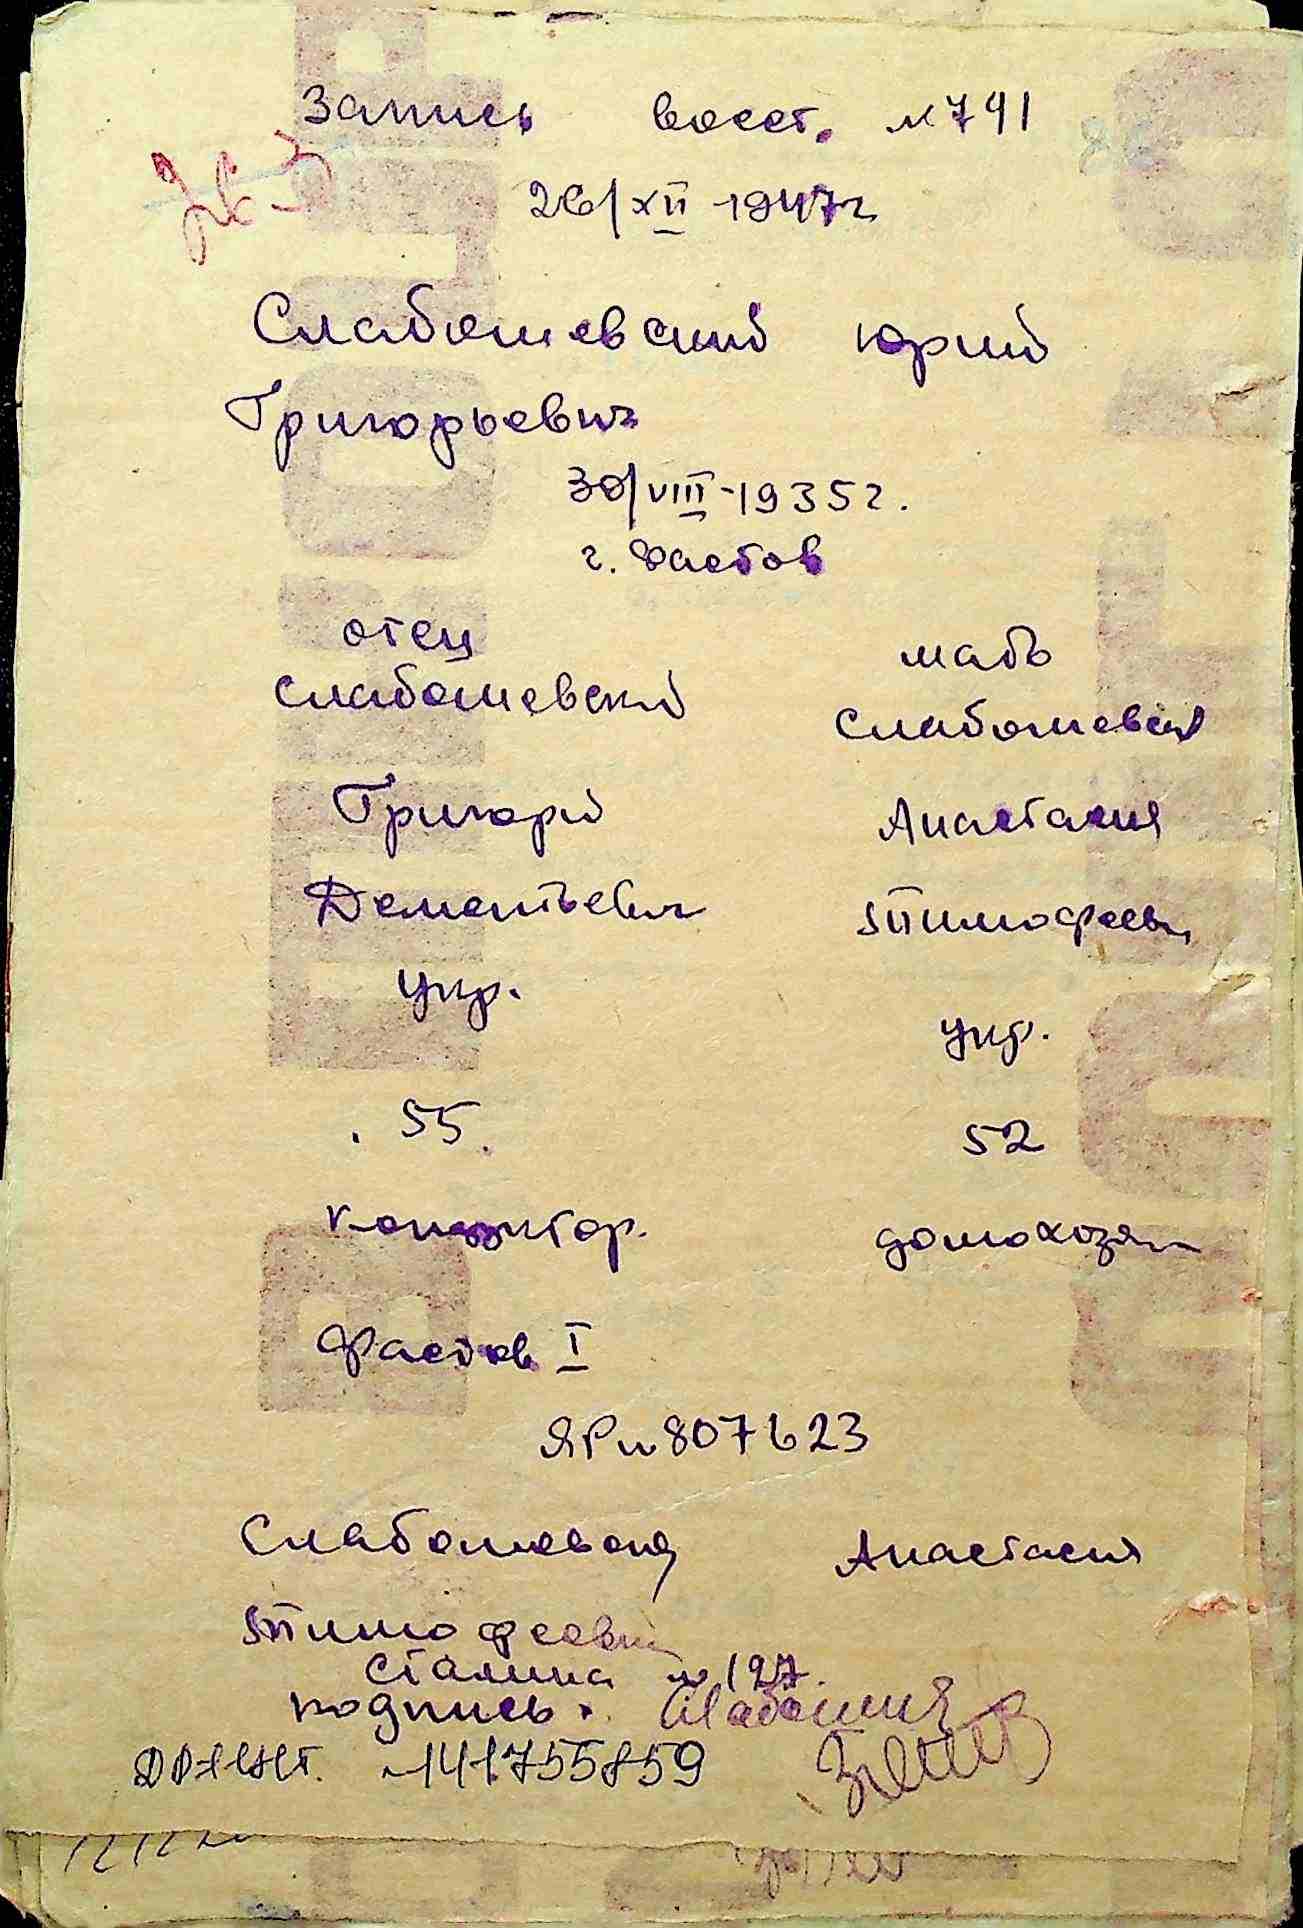 Запись восст. №791
26/XII-1947г
Слабошевский Юрий
Григорьевич
30/VIII-1935г.
г. Фастов
отец мать
Слабошевский Слабошевск
Григорий Анастасия
Дементьевич Тимофеевн
укр. укр.
55. 52
домохозяй
Фастов I
ЯР № 807623
Слабошевская Анастасия
Тимофеевн
Сталина № 127.
подпись: